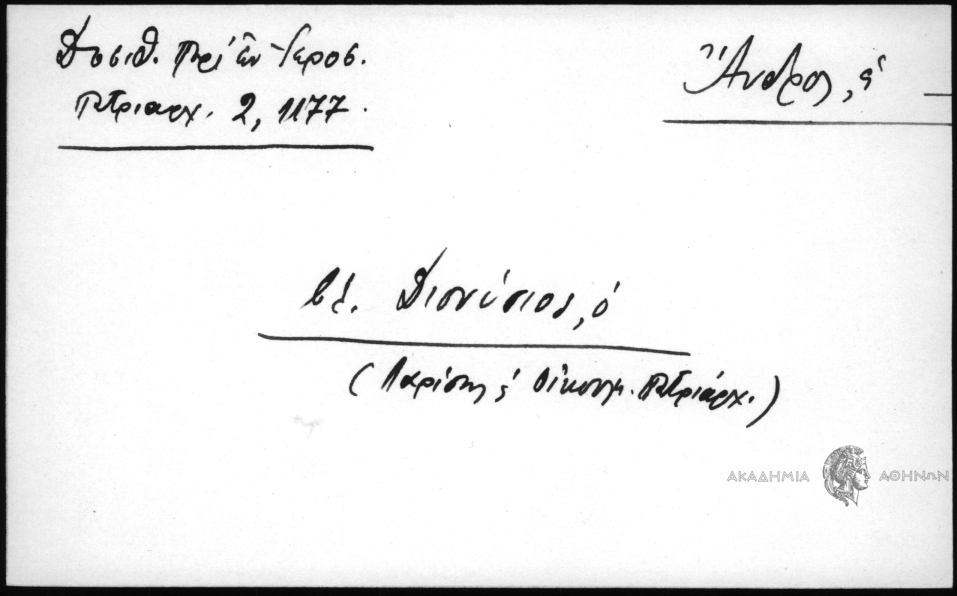 Δοσιθ. Περὶ ἐν Ἱεροσ.
Πατριαρχ. 2, 1177.
Ἄνδρος, ἡ
βλ. Διονύσιος, ὁ
(Λαρίσης ἔ Οἰκουμ. Πατριάρχ.)
ΑΚΑΔΗΜΙΑ ΑΘΗΝΩΝ